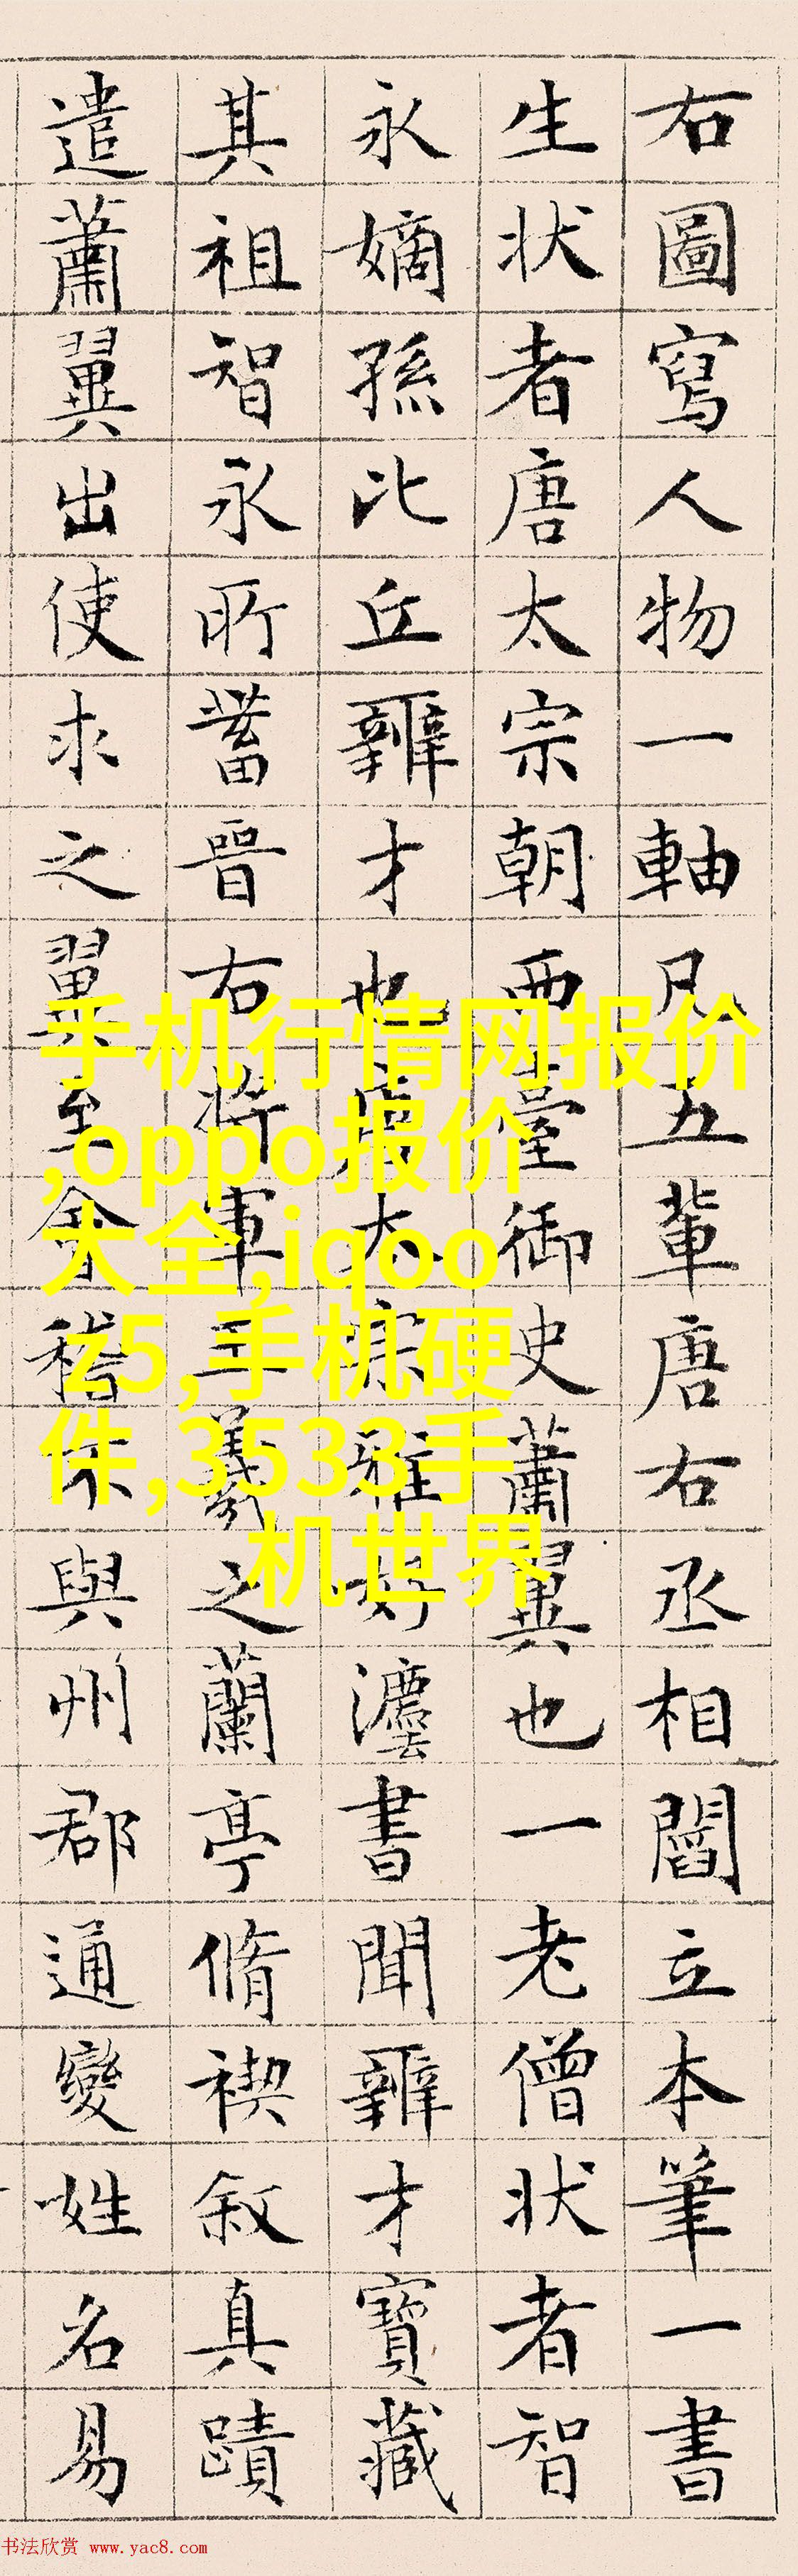 右圖寫人物一軸凡五輩唐右丞相閻立本筆一書
生状者唐太宗朝西臺御史蕭翼也一老僧状者智
永嫡孫比丘辨才也唐太宗雅好灋書聞辨才寶藏
其祖智永所蓄晉右將軍王羲之蘭亭脩禊叙真蹟
遣蕭翼出使求之翼至會稽不與州郡通變姓名易
手机行情网报价
,oppo报价
大全,iqoo
z5,手机硬
件,3533手
机世界
书法欣赏 www.yac8.com